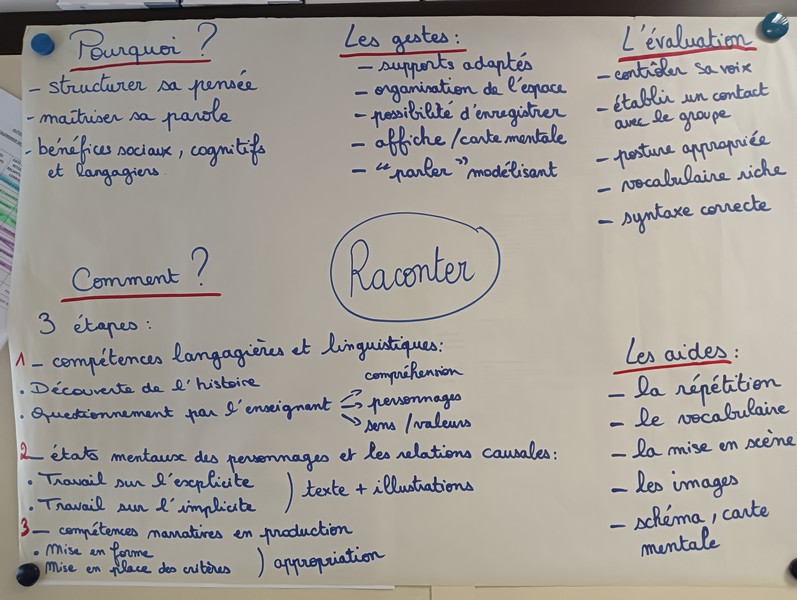 Pourquoi ?
- structurer sa pensée
- maîtriser sa parole
- bénéfices sociaux, cognitifs
et langagiers.
Les gestes :
- supports adaptés
- organisation de l'espace
- possibilité d'enregistrer
- affiche / carte mentale
- "parler" modélisant
L'évaluation
- contrôler sa voix
- établir un contact
avec le groupe
- posture appropriée
- vocabulaire riche
- syntaxe correcte
Raconter
Comment ?
3 étapes :
1 - compétences langagières et linguistiques :
• Découverte de l'histoire
• Questionnement par l'enseignant → compréhension
→ personnages
→ sens / valeurs
2 - états mentaux des personnages et les relations causales :
• Travail sur l'explicite
• Travail sur l'implicite ) texte + illustrations
3 - compétences narratives en production
• Mise en forme
Mise en place des critères ) appropriation
Les aides :
- la répétition
- le vocabulaire
- la mise en scène
- les images
- schéma, carte
mentale